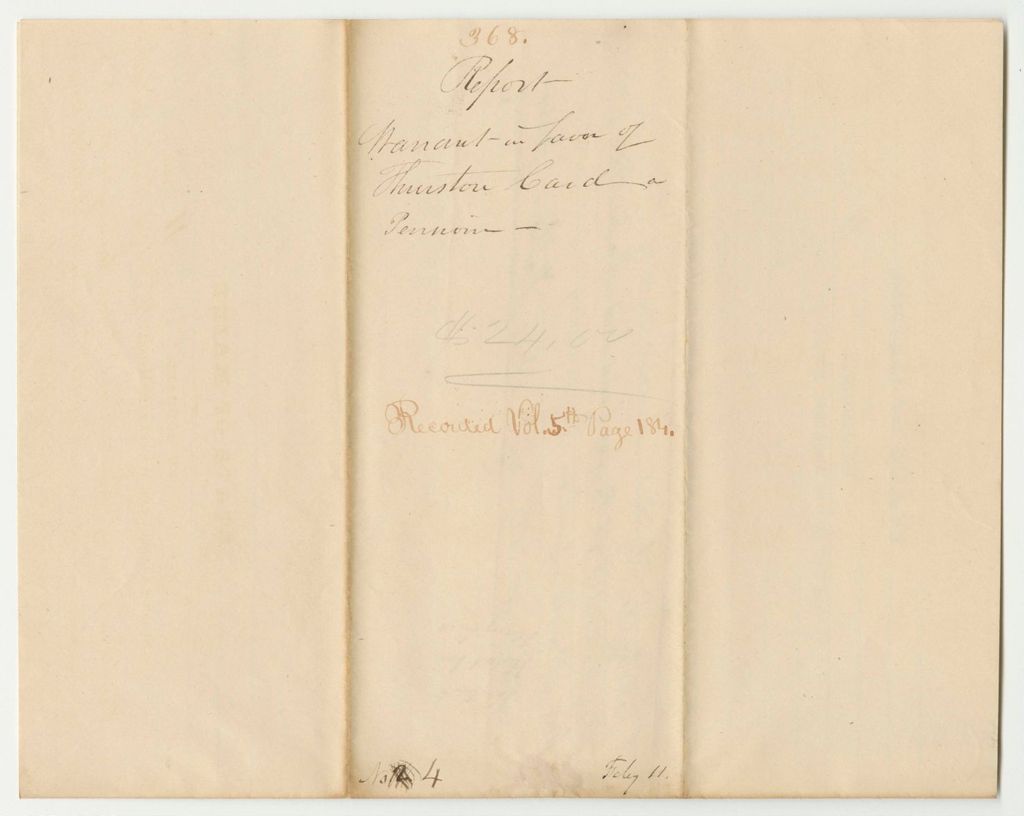 368.
Report
Warrant in favor of
Thurston Card a
Pension —
$24,00
Recorded Vol. 5th Page 184.
No 4
Feby 11.